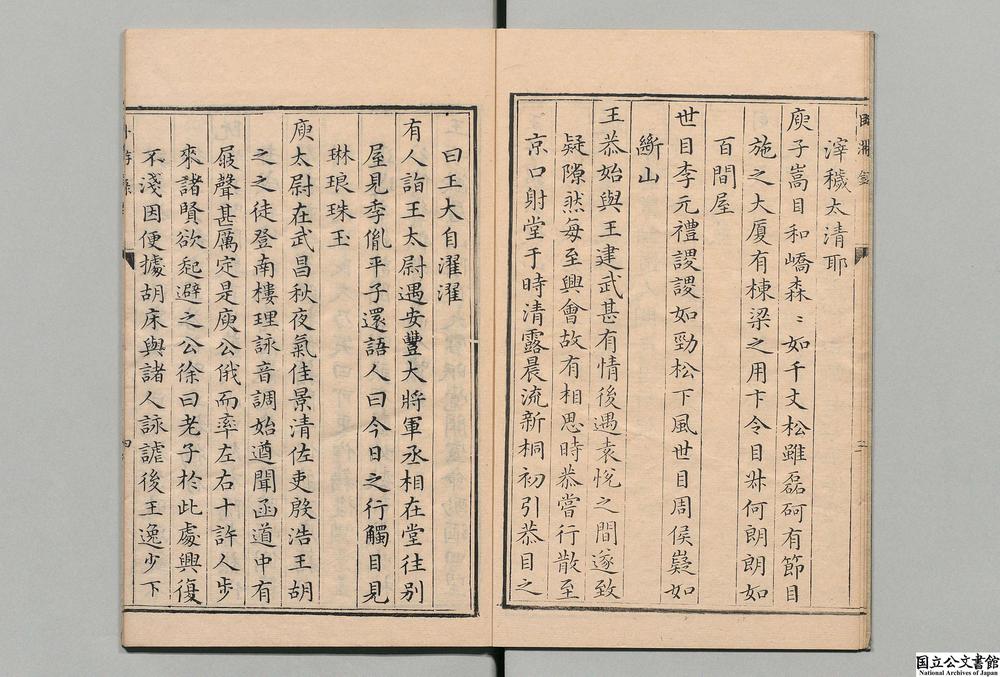 滓穢太清耶
庾子嵩目和嶠森〻如千丈松雖磊砢有節目
施之大厦有棟梁之用卞令目叔何朗朗如
百間屋
世目李元禮謖謖如勁松下風世目周侯嶷如
斷山
王恭始與王建武甚有情後遇袁悅之間遂致
疑隙然每至興會故有相思時恭嘗行散至
京口射堂于時清露晨流新桐初引恭目之
曰王大自濯濯
有人詣王太尉遇安豐大將軍丞相在堂往別
屋見季胤平子還語人曰今日之行觸目見
琳琅珠玉
庾太尉在武昌秋夜氣佳景清佐吏殷浩王胡
之之徒登南樓理詠音調始遒聞函道中有
屐聲甚厲定是庾公俄而率左右十許人步
來諸賢欲起避之公徐曰老子於此處興復
不淺因便據胡床與諸人詠謔後王逸少下
四
国立公文書館
National Archives of Japan